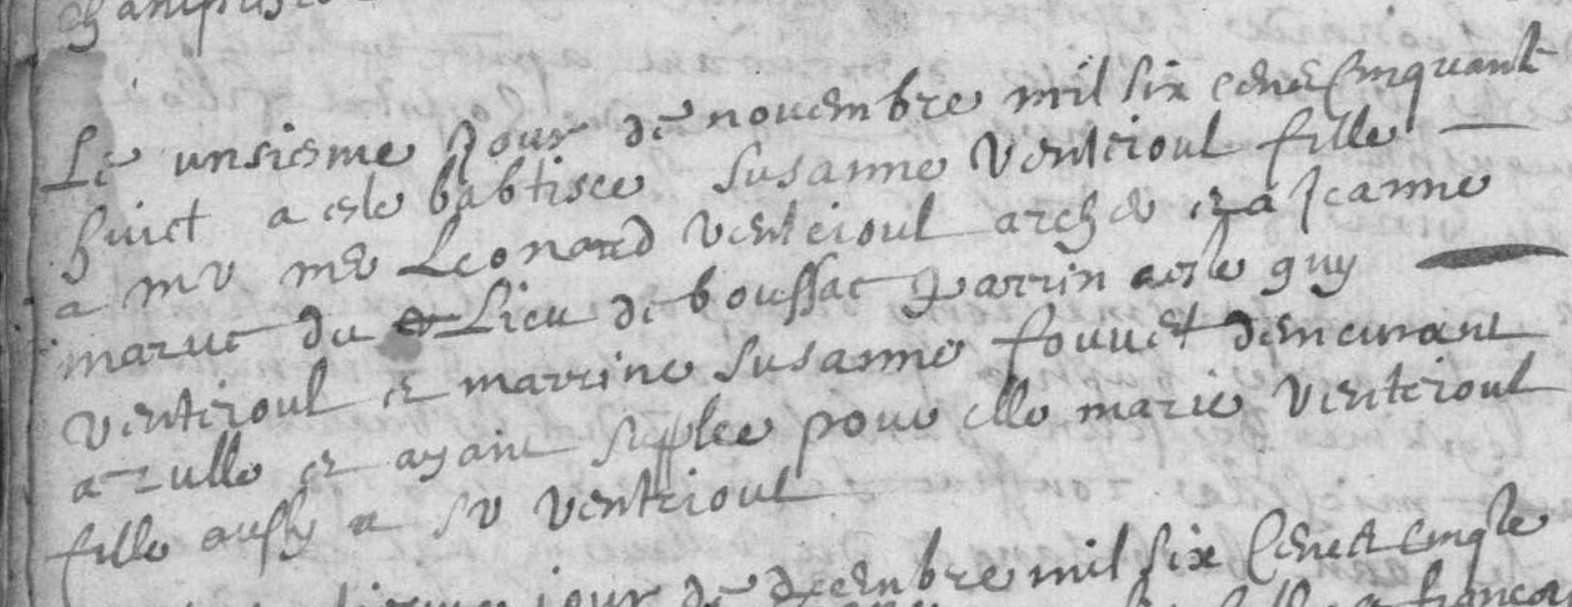 Le unsiesme Jour de novembre mil six cens Cinquante
huict a este babtisee Susanne Venteioul fille
a mr me Leonard Venteioul archer et a Jeanne
maruc du Lieu de boussac parrin a este guy
Venteioul et marrine Susanne fouuet demeurant
a et ayant supplee pour elle marie Venteioul
fille aussy a sr Venteioul
jour de decembre mil six Cens et cinq le